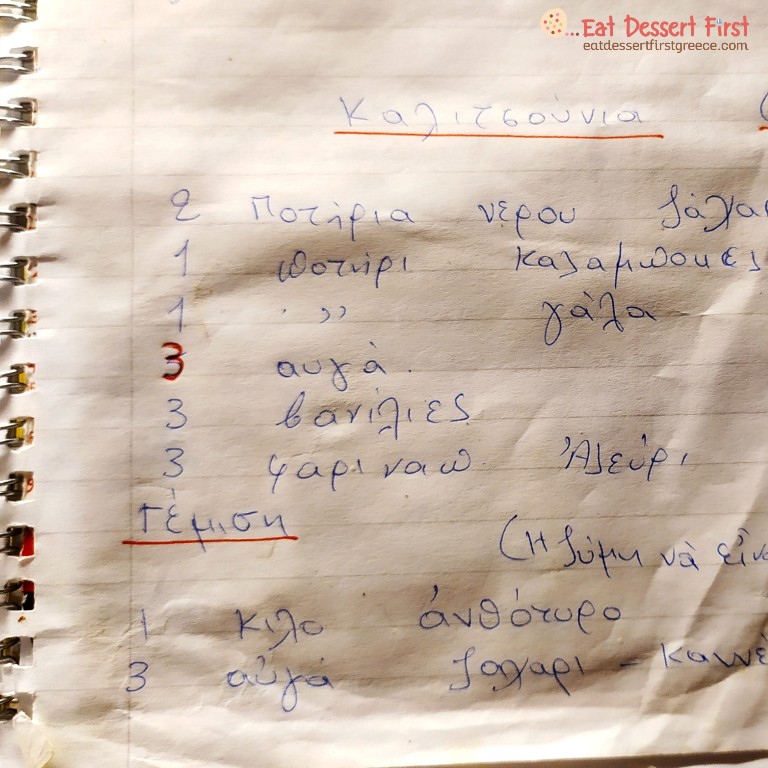 ...Eat Dessert First
eatdessertfirstgreece.com
Καλιτσούνια (
2 Ποτήρια νερου Ζάχα
1 ποτήρι καλαμποκες
1 ,, γάλα
3 αυγά.
3 βανίλιες
3 φαριναπ Ἀλεύρι
Γέμιση
(Η Ζύμη νὰ εἶνα
1 κιλο ἀνθότυρο
3 αὐγά Ζαχαρι - Καννέ